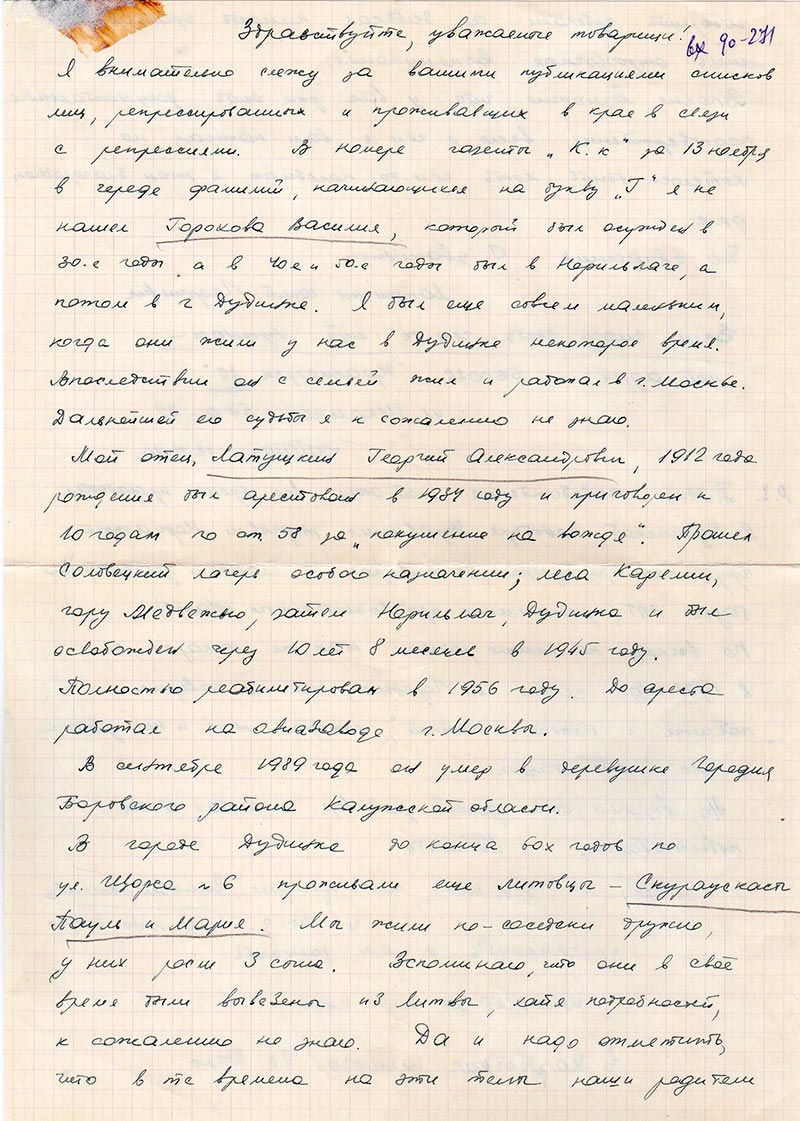 Здравствуйте, уважаемые товарищи!
вх 90-271
Я внимательно слежу за вашими публикациями списков
лиц, репрессированных и проживавших в крае в связи
с репрессиями. В номере газеты „К.к" за 13 ноября
в череде фамилий, начинающихся на букву „Г" я не
нашел Горохова Василия, который был осужден в
30-е годы, а в 40е и 50-е годы был в Норильлаге, а
потом в г Дудинке. Я был еще совсем маленьким,
когда они жили у нас в Дудинке некоторое время.
Впоследствии он с семьей жил и работал в г. Москве.
Дальнейшей его судьбы я к сожалению не знаю.
Мой отец, Латушкин Георгий Александрович, 1912 года
рождения был арестован в 1934 году и приговорен к
10 годам по ст 58 за „покушение на вождя". Прошел
Соловецкий лагерь особого назначения; леса Карелии,
гору Медвежью, затем Норильлаг, Дудинка и был
освобожден через 10 лет 8 месяцев в 1945 году.
Полностью реабилитирован в 1956 году. До ареста
работал на авиазаводе г. Москвы.
В сентябре 1989 года он умер в деревушке
Боровского района Калужской области.
В городе Дудинке до конца 60х годов по
ул. Щорса № 6 проживали еще литовцы – Скураускасы
Пауль и Мария. Мы жили по-соседски дружно,
у них росли 3 сына. Вспоминаю, что они в своё
время были вывезены из Литвы, хотя подробностей,
к сожалению не знаю. Да и надо отметить,
что в те времена на эти темы наши родители